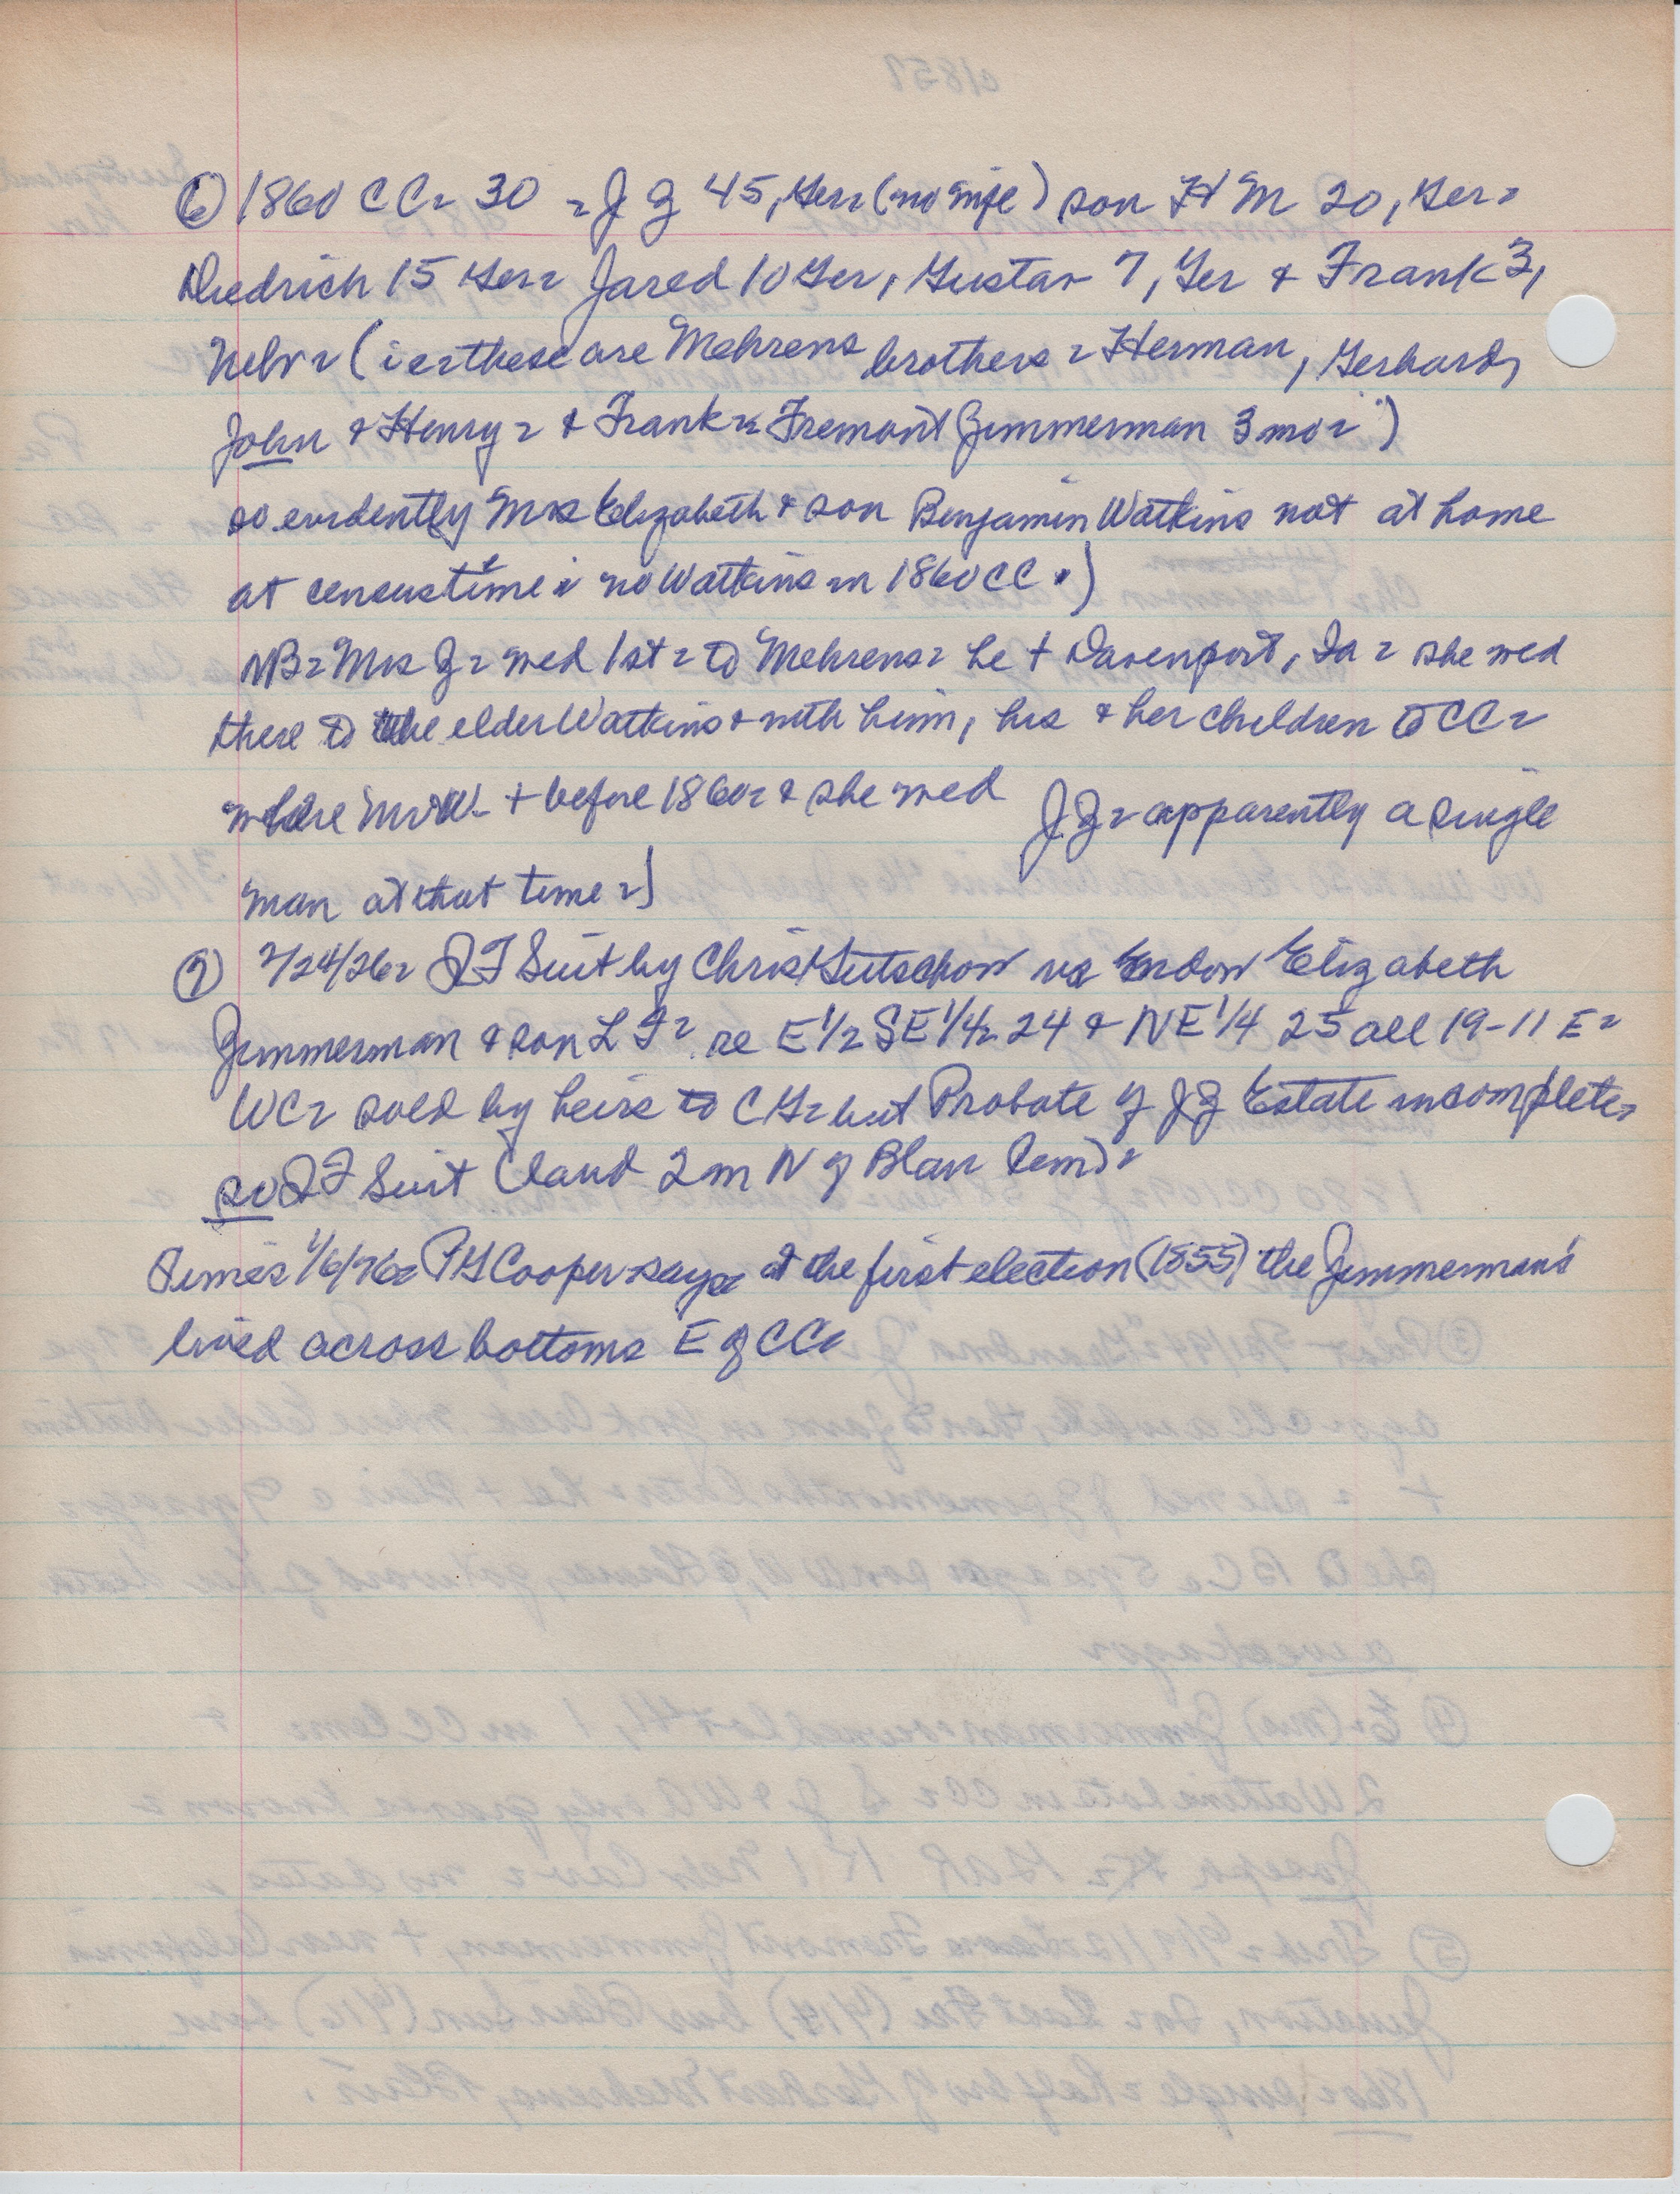 ⑥ 1860 CC= 30 = J Z 45, Ger= (no wife) son H M 20, Ger=
Diedrich 15 Ger= Jared 10 Ger, Gustav 7, Ger & Frank 3,
Nebr= (ie=these are Mehrens brothers = Herman, Gerhard,
John & Henry= & Frank= Fremont Zimmerman 3 mo= )
so evidently Mrs Elizabeth & son Benjamin Watkins not at home
at census time = no Watkins in 1860 CC =)
NB= Mrs Z= wed 1st= to Mehrens= he + Davenport, Ia = she wed
there to the elder Watkins & with him, his & her children to CC=
where Mr W- + before 1860= & she wed J Z= apparently a single
man at that time =)
⑦ 2/24/26= QT Suit by Chris Gutschow vs Widow Elizabeth
Zimmerman & son L F= re E 1/2 SE 1/4= 24 & NE 1/4 25 all 19-11 E=
WC= sold by heirs to C G= but Probate of J Z Estate incomplete=
so QT Suit (land 2 m N of Blair Cem) =
Times 1/6/76= P G Cooper says= at the first election (1855) the Zimmerman's
lived across bottoms E of CC=